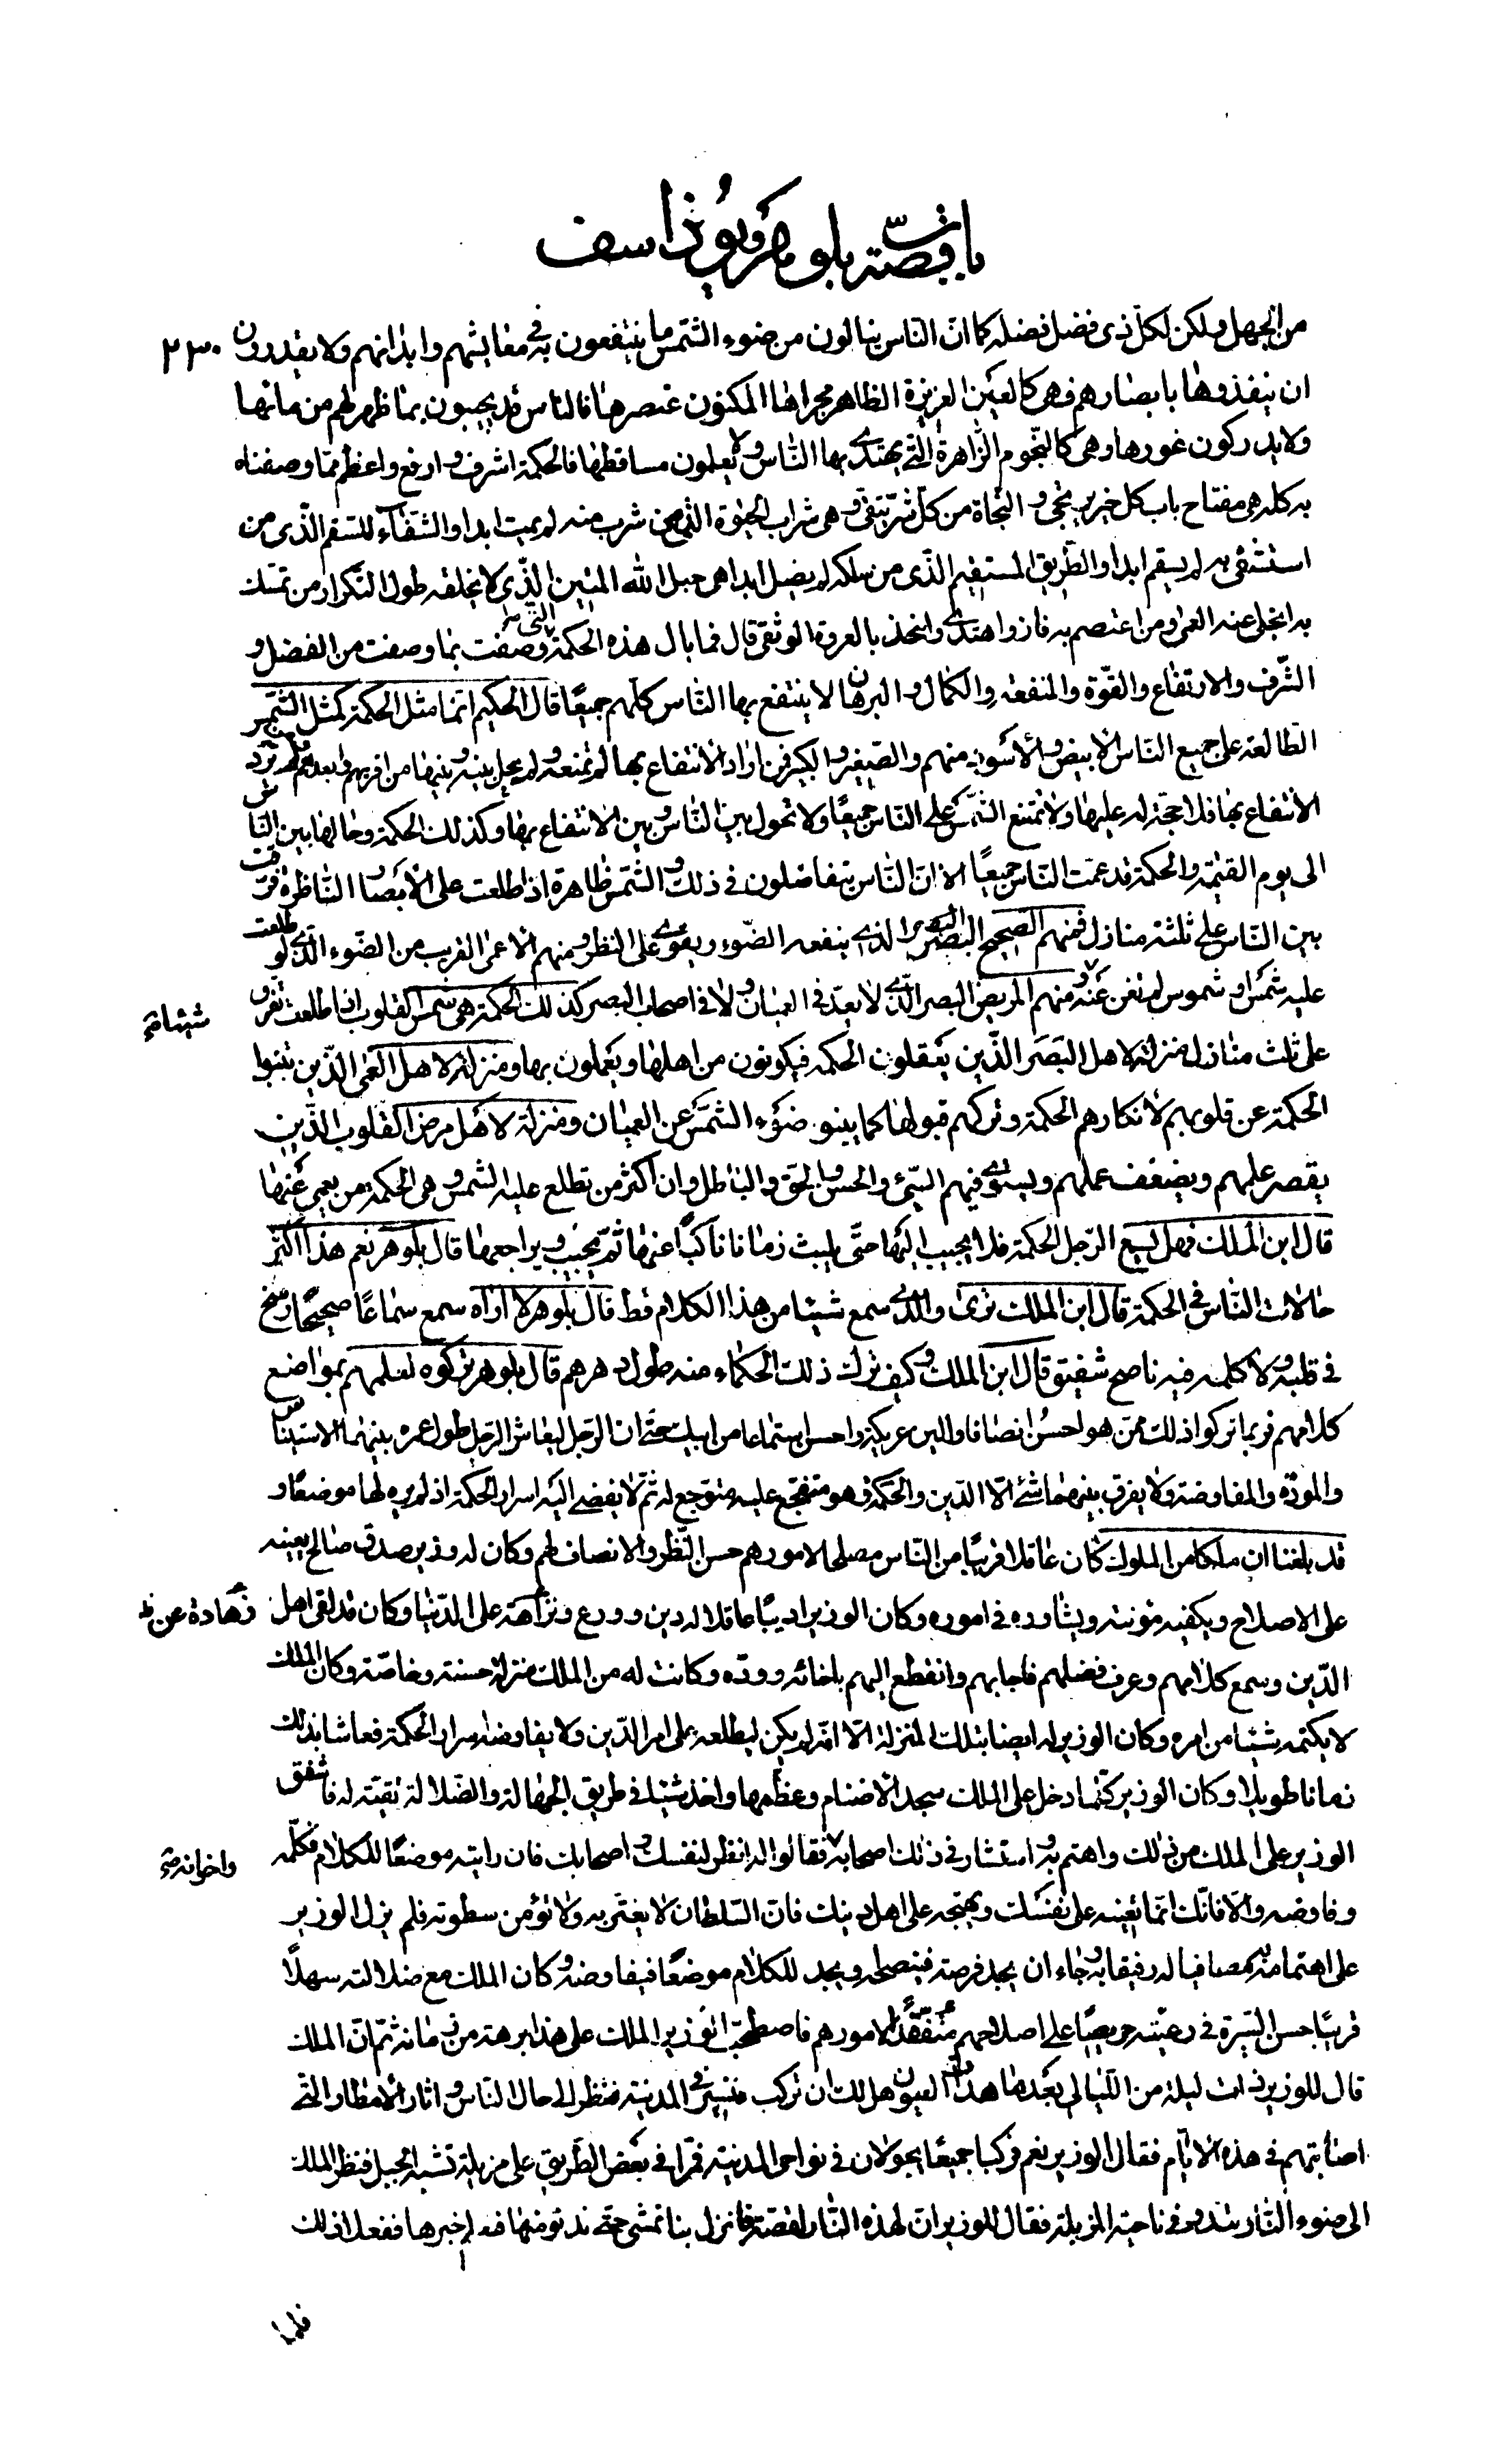 باب قصّة بلوهر ويوذاسف
من الجهل ولكن لكلّ ذى فضل فضله كما انّ النّاس ينالون من ضوء الشّمس ما ينتفعون به فى معايشهم وابدانهم ولا يقدرون ٢٣٠
ان ينفذوها بابصارهم فهى كالعين الغزيرة الظاهر مجراها المكنون عنصرها فالناس قد يجيبون بما ظهر لهم من مائها
ولا يدركون غورها وهى كالنّجوم الزّاهرة الّتى يهتدى بها النّاس ولا يعلمون مساقطها فالحكمة اشرف وارفع واعظم ممّا وصفناه
به كلّه هى مفتاح باب كل خير يرتجى و النّجاة من كلّ شرّ يتقى وهى شراب الحيوة الّتى من شرب منه لم يمت ابدا والشفاء للسقم الّذى من
استشفى به لم يسقم ابدا والطّريق المستقيم الّذى من سلكه لم يضل ابدا هى حبل الله المتين الّذى لا يخلقه طول التكرار من تمسّك
به انجلى عنه العمى ومن اعتصم به فاز واهتدى واخذ بالعروة الوثقى قال فما بال هذه الحكمة الّتى وصفت بما وصفت من الفضل و
الشّرف والارتفاع والقوّة والمنفعة والكمال والبرهان لا ينتفع بها النّاس كلّهم جميعًا قال الحكيم انّما مثل الحكمة كمثل الشّمس
الطالعة على جميع النّاس الابيض والاسود منهم والصّغير والكبير فمن اراد الانتفاع بها لم تمنعه ولم يحل بينه وبينها من اقربهم وابعدهم ومن لم يرد
الانتفاع بها فلا حجّة له عليها ولا تمتنع الشّمس على النّاس جميعًا ولا تحول بين النّاس وبين الانتفاع بها وكذلك الحكمة وحالها بين النّاس
الى يوم القيمة والحكمة قد عمت النّاس جميعًا الا انّ النّاس يتفاضلون فى ذلك والشّمس ظاهرة اذ طلعت على الابصار النّاظرة فرقت
بين النّاس على ثلثة منازل فمنهم الصحيح البصر الّذى ينفعه الضّوء ويقوى على النظر ومنهم الاعمى القريب من الضّوء الّذى لو طلعت
عليه شمس او شموس لم تغن عنه ومنهم المريض البصر الّذى لا يعدّ فى العميان ولا فى اصحاب البصر كذلك الحكمة هى شمس القلوب اذا طلعت تفرق
على ثلث منازل منزلة لاهل البصر الّذين يعقلون الحكمة فيكونون من اهلها ويعملون بها ومنزلة لاهل العمى الّذين تنبوا
الحكمة عن قلوبهم لانكارهم الحكمة وتركهم قبولها كما ينبو ضوء الشّمس عن العميان ومنزلة لاهل مرض القلوب الّذين
يقصر علمهم ويضعف عملهم ويستوى فيهم السّيّئ والحسن والحق والباطل وان اكثر من تطلع عليه الشمس وهى الحكمة من يعمى عنها
قال ابن الملك فهل يسع الرّجل الحكمة فلا يجيب اليها حتّى يلبث زمانا ناكبًا عنها ثمّ يجيب ويراجعها قال بلوهر نعم هذا اكثر
حالات النّاس فى الحكمة قال ابن الملك ترى والدى سمع شيئا من هذا الكلام قط قال بلوهر لا اراه سمع سماعًا صحيحًا رسخ
فى قلبه ولا كلمه فيه ناصح شفيق قال ابن الملك وكيف ترك ذلك الحكماء منه طول دهرهم قال بلوهر تركوه لعلمهم بمواضع
كلامهم فربما تركوا ذلك ممّن هو احسن انصافا والين عريكة واحسن استماعا من ابيك حتّى ان الرّجل ليعاش الرّجل طول عمره بينهما الاستيناس
والمودّة والمفاوضة ولا يفرق بينهما شئ الّا الدّين والحكمة وهو متفجع عليه متوجع له ثمّ لا يفضى اليه اسرار الحكمة اذ لم يره لها موضعًا و
قد بلغنا ان ملكا من الملوك كان عاقلا قريبًا من النّاس مصلحا لامورهم حسن النّظر والانصاف لهم وكان له وزير صدق صالح يعينه
على الاصلاح ويكفيه مؤنته ويشاوره فى اموره وكان الوزير اديبًا عاقلا له دين وورع ونزاهة على الدّنيا وكان قد لقى اهل زهادة عن
الدّين وسمع كلامهم وعرف فضلهم فاجابهم وانقطع اليهم باخائه وودّه وكانت له من الملك منزلة حسنة وخاصّة وكان الملك
لا يكتمه شيئا من امره وكان الوزير له ايضا بتلك المنزلة الّا انّه لم يكن ليطلعه على امر الدّين ولا يفاوضه اسرار الحكمة فعاشا بذلك
زمانا طويلا وكان الوزير كلّما دخل على الملك سجد الاصنام وعظّمها واخذ شيئا فى طريق الجهالة والضّلالة تقيّة له فاشفق
الوزير على الملك من ذلك واهتم به واستشار فى ذلك اصحابه فقالوا له انظر لنفسك واصحابك فان رايته موضعًا للكلام فكلّمه واخوانه
وفاوضه والّا فانّك انّما تعينه على نفسك وتهيجه على اهل دينك فانّ السّلطان لا يغترّ به ولا تؤمن سطوته فلم يزل الوزير
على اهتمامه به مصافيا له رفيقا به رجاء ان يجد فرصة فينصحه ويجد للكلام موضعًا فيفاوضه وكان الملك مع ضلالته سهلًا
قريبًا حسن السّيرة فى رعيّته حريصًا على اصلاحهم متفقّدًا لامورهم فاصطحبا الوزير الملك على هذا برهة من زمانه ثمّ انّ الملك
قال للوزير ذات ليلة من اللّيالى بعد ما هدات العيون هل لك ان تركب فنسير فى المدينة فننظر الى حال النّاس واثار الامطار الّتى
اصابتهم فى هذه الايّام فقال الوزير نعم فركبا جميعًا يجولان فى نواحى المدينة فمرّا فى بعض الطّريق على مزبلة تشبه الجبل فنظر الملك
الى ضوء النّار تبدو فى ناحية المزبلة فقال للوزير انّ لهذه النّار لقصّة فانزل بنا نمشى حتّى ندنو منها فنعلم خبرها ففعلا ذلك
فلما